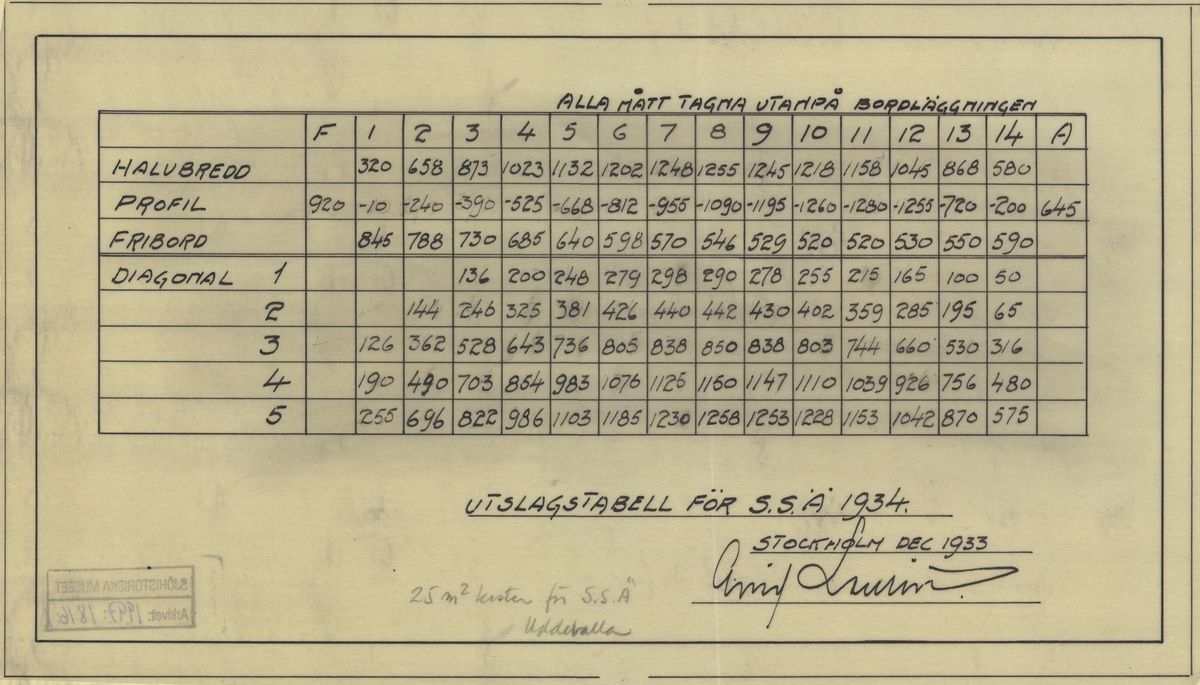 ALLA MÅTT TAGNA UTANPÅ BORDLÄGGNINGEN
F 1 2 3 4 5 6 7 8 9 10 11 12 13 14 A
HALVBREDD 320 658 873 1023 1132 1202 1248 1255 1245 1218 1158 1045 868 580
PROFIL 920 -10 -240 -390 -525 -668 -812 -955 -1090 -1195 -1260 -1280 -1255 -720 -200 645
FRIBORD 845 788 730 685 640 598 570 546 529 520 520 530 550 590
DIAGONAL 1 136 200 248 279 298 290 278 255 215 165 100 50
2 144 246 325 381 426 440 442 430 402 359 285 195 65
3 126 362 528 643 736 805 838 850 838 803 744 660 530 316
4 190 490 703 854 983 1076 1125 1150 1147 1110 1039 926 756 480
5 255 696 822 986 1103 1185 1230 1258 1253 1228 1153 1042 870 575
UTSLAGSTABELL FÖR S.S.Ä 1934.
STOCKHOLM DEC 1933
25 m² koster för S.S.Ä
Uddevalla
SJÖHISTORISKA MUSEET
Arkivet: 1997:1816